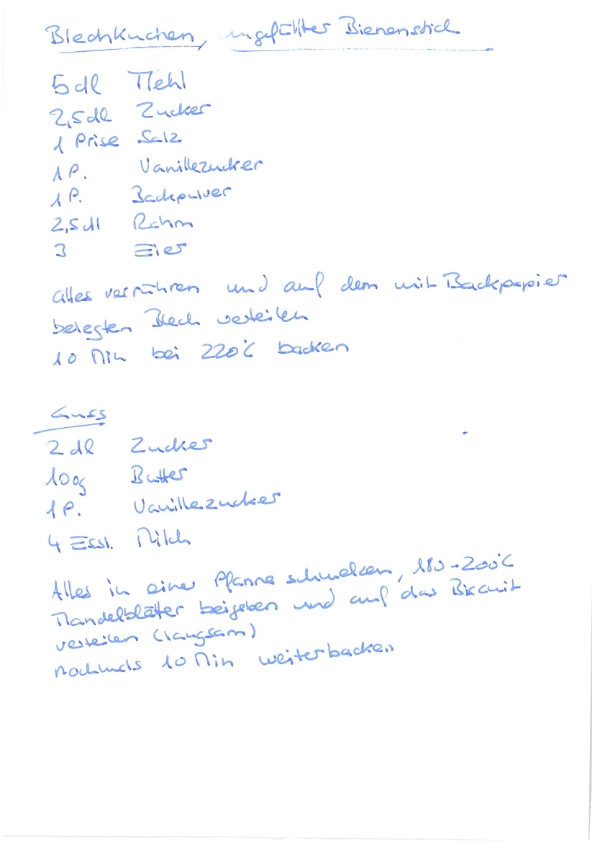 Blechkuchen, ungefüllter Bienenstich
5dl Mehl
2,5dl Zucker
1 Prise Salz
1P. Vanillezucker
1P. Backpulver
2,5dl Rahm
3 Eier
alles verrühren und auf dem mit Backpapier
belegten Blech verteilen
10 Min bei 220°C backen
Guss
2 dl Zucker
100g Butter
1P. Vanillezucker
4 Essl. Milch
Alles in einer Pfanne schmelzen, 180-200°C
Mandelblätter beigeben und auf das Biscuit
verteilen (langsam)
nochmals 10 Min weiterbacken